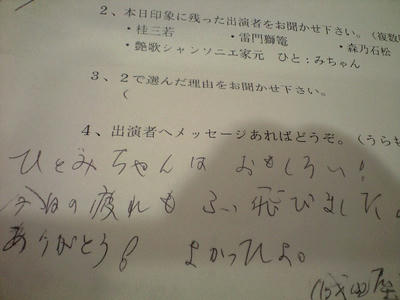 2、本日印象に残った出演者をお聞かせ下さい。(複数
・桂三若 ・雷門獅篭 ・森乃石松
・艶歌シャンソニエ家元 ひと:みちゃん
3、2で選んだ理由をお聞かせ下さい。
(
4、出演者へメッセージあればどうぞ。(うらも
ひとみちゃんは おもしろい!
今日の疲れも ふっ飛びました。
ありがとう。 よかったよ。